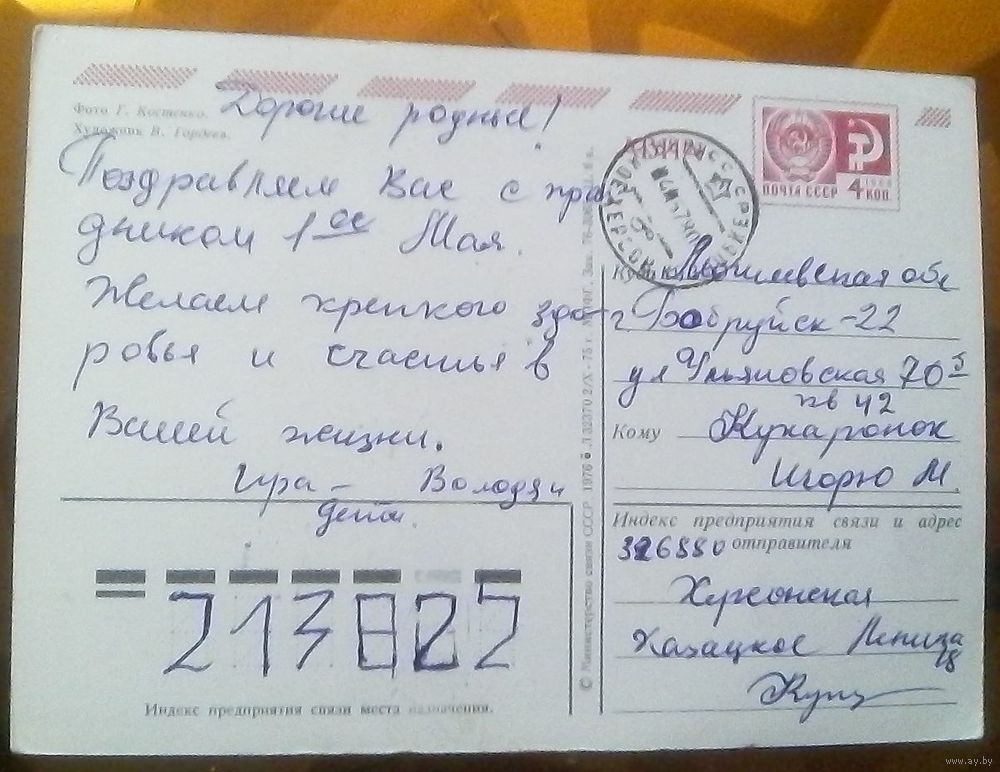 Фото Г. Костенко.
Художник В. Гордеев.
Дорогие родные!
Поздравляем Вас с праз
дником 1ое Мая.
Желаем крепкого здо-
ровья и счастья в
Вашей жизни.
Ира - Володя и
дети.
213822
Индекс предприятия связи места назначения.
© Министерство связи СССР 1976
Л 32370 2/X-75 г.
ПОЧТА СССР 4 КОП.
1966
ХЕРСОН
Куда Могилевская обл
г Бобруйск-22
ул Ульяновская 70
кв 42
Кому Кухаронок
Игорю М.
Индекс предприятия связи и адрес
отправителя
326880
Херсонская
Казацкое Ленина
18
www.ay.by